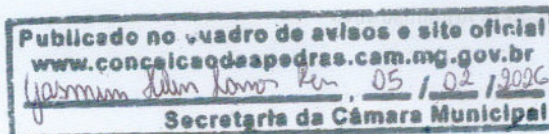 Publicado no quadro de avisos e site oficial
www.conceicaodaspedras.cam.mg.gov.br
Yasmim , 05 / 02 / 2026
Secretaria da Câmara Municipal